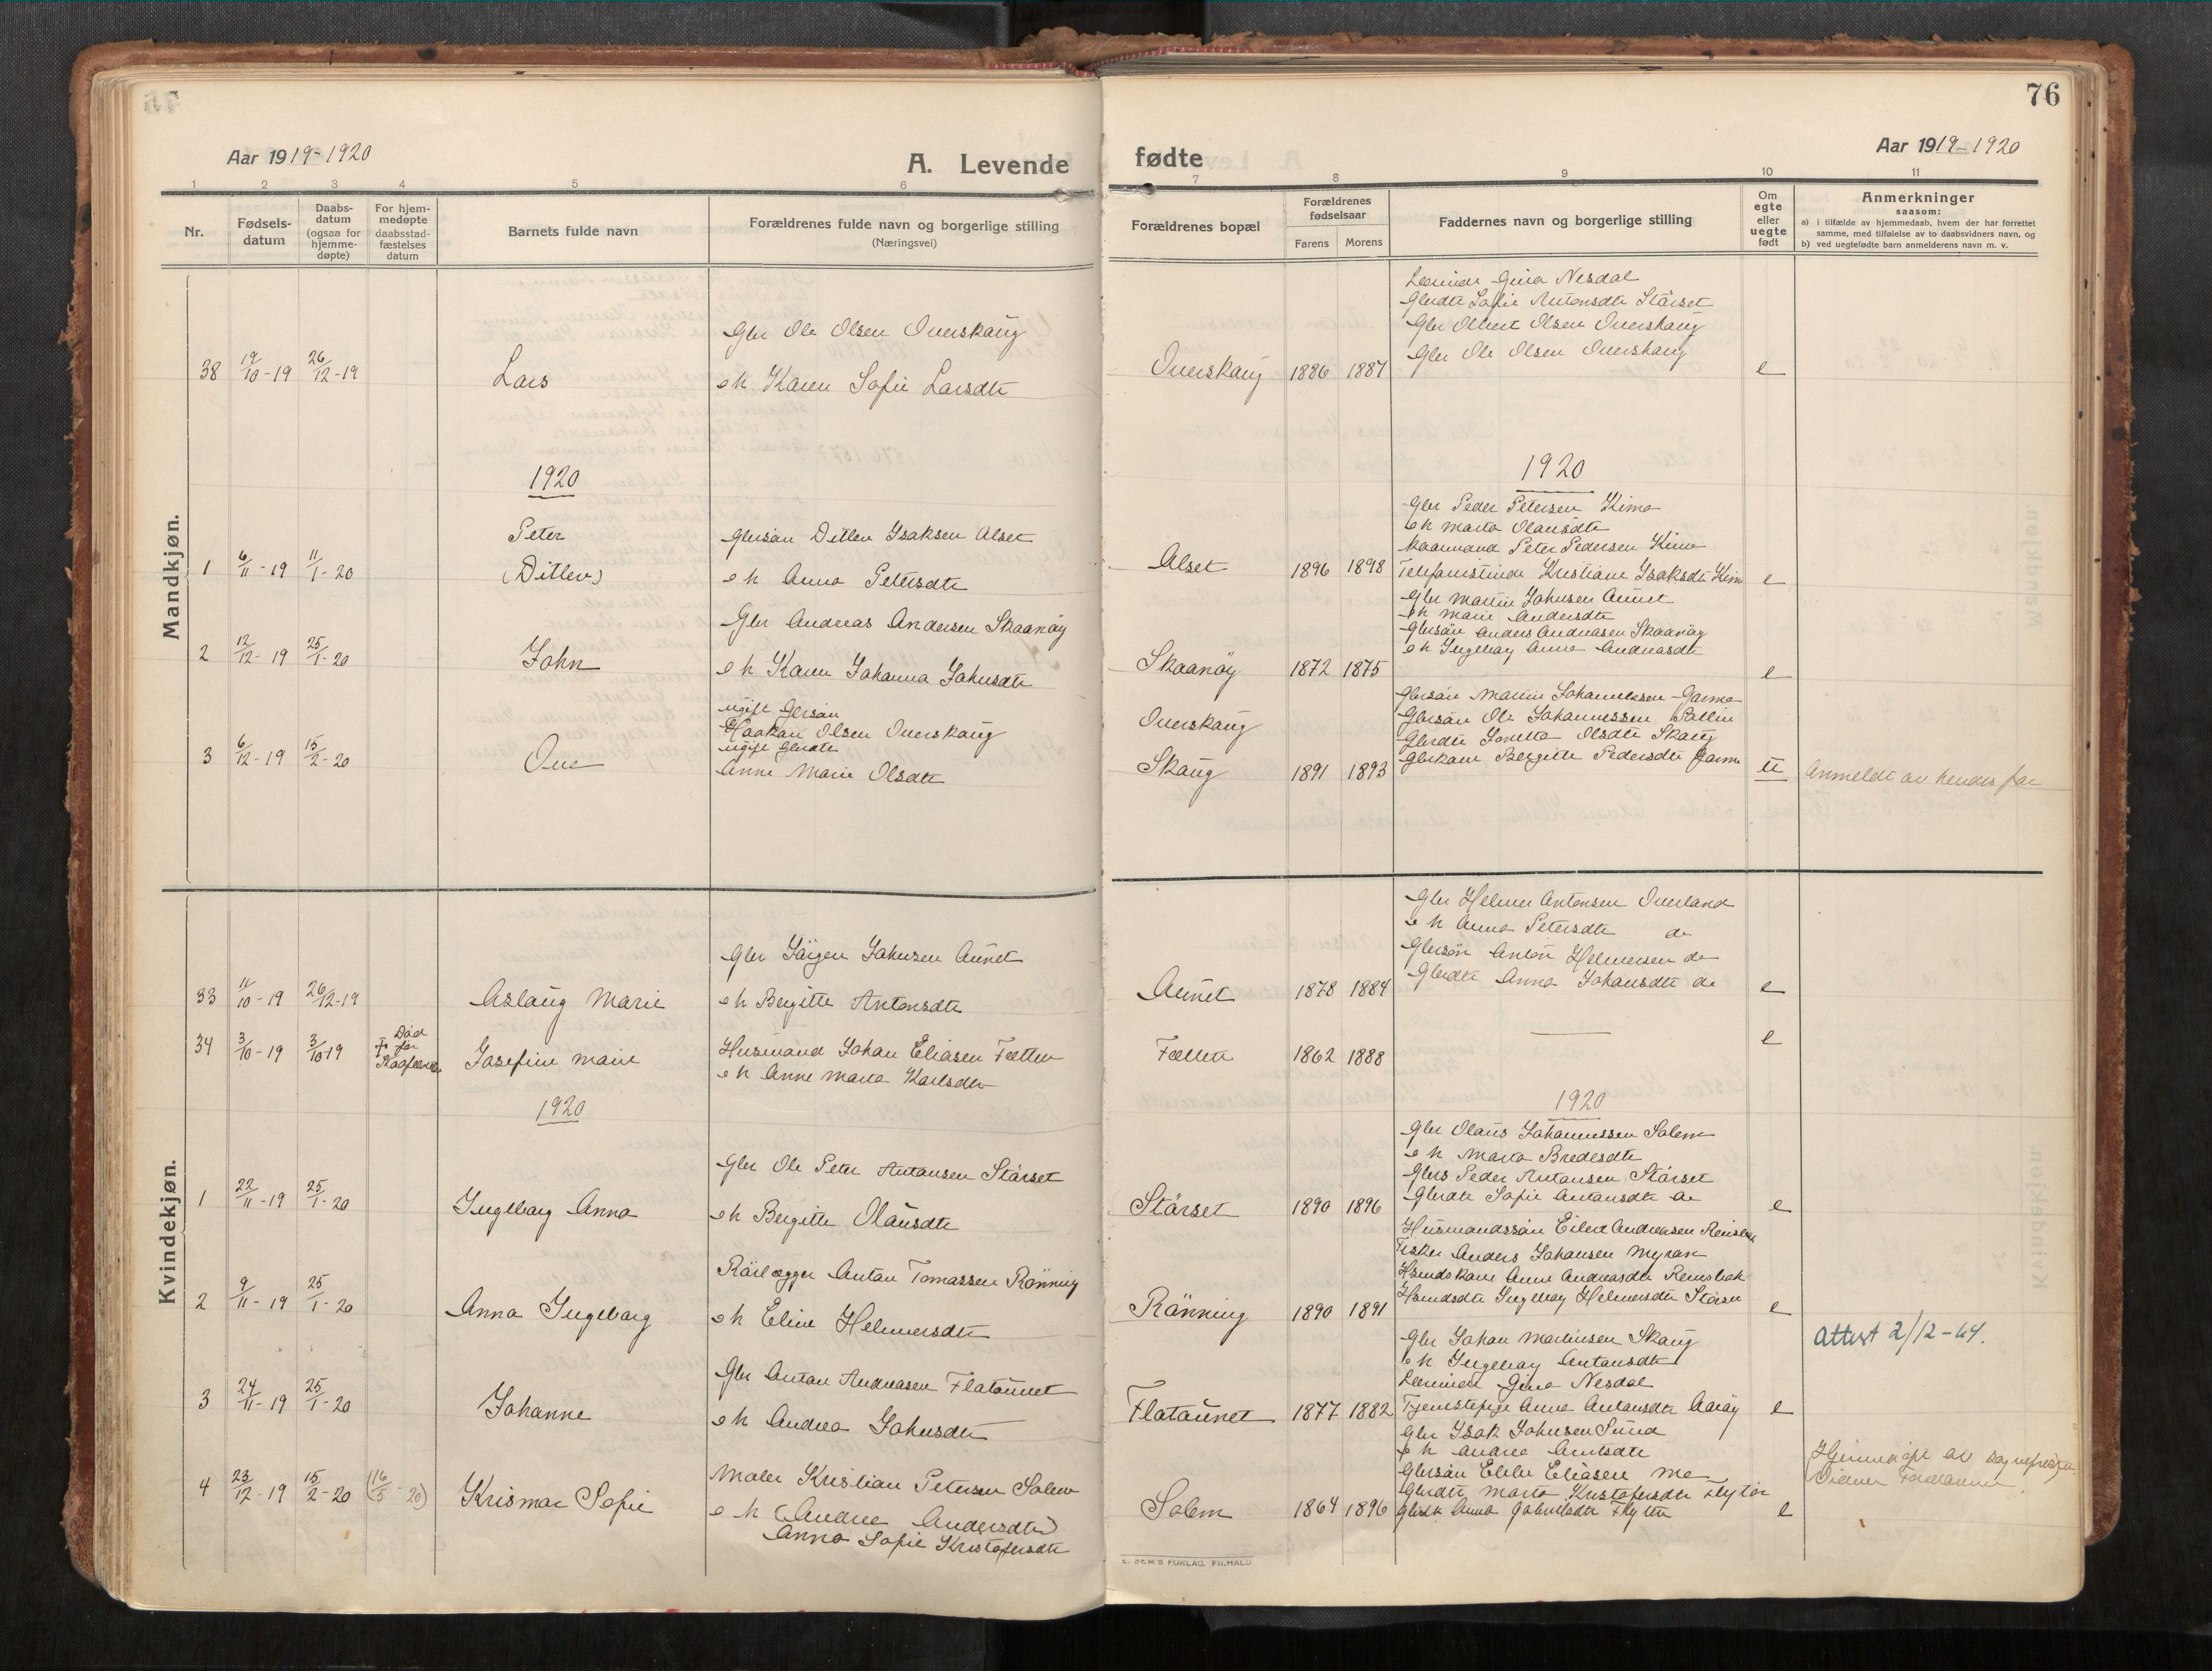 76
Aar 1919-1920
A. Levende
fødte
Aar 1919-1920
1 2 3 4 5 6 7 8 9 10 11
Nr.
Fødsels-
datum
Daabs-
datum
(ogsaa for
hjemme-
døpte)
For hjem-
medøpte
daabsstad-
fæstelses
datum
Barnets fulde navn
Forældrenes fulde navn og borgerlige stilling
(Næringsvei)
Forældrenes bopæl
Forældrenes
fødselsaar
Farens Morens
Faddernes navn og borgerlige stilling
Om
egte
eller
uegte
født
Anmerkninger
saasom:
a) i tilfælde av hjemmedaab, hvem der har forrettet
samme, med tilføielse av to daabsvidners navn, og
b) ved uegtefødte barn anmelderens navn m. v.
Mandkjøn.
38 19/10-19 26/12-19
Lars
Gbr Ole Olsen Overskaug
e h Karen Sofie Larsdtr
Overskaug 1886 1887
Lærerinde Gina Nesdal
Gbrdtr Sofie Antonsdtr Störset
Gbr Albert Olsen Overskaug
Gbr Ole Olsen Overskaug
e
1920
1920
1 6/11-19 11/1-20
Peter
(Ditlev)
Gbrsön Ditlev Isaksen Alset
e h Anna Petersdtr
Alset 1896 1898
Gbr Peder Petersen Kimo
e h Marta Olausdtr
Peter Pedersen Kimo
Telefonistinde Kristiane Isaksdtr Kimo
e
2 12/12-19 25/1-20
John
Gbr Andreas Andersen Skaanöy
e h Karen Johanna Johnsdtr
Skaanöy 1872 1875
Gbr Martin Johnsen Aunet
e h Marie Andersdtr
Gbrsön Anders Andreasen Skaanöy
e h Ingeborg Anna Andreasdtr
e
3 6/12-19 15/2-20
Ove
ugift Gbrsön
Haakon Olsen Overskaug
ugift Gbrdtr
Anne Marie Olsdtr
Overskaug
Skaug 1891 1893
Gbrsön Martin Johannessen Garmo
Gbrsön Ole Johannessen
Gbrdtr Olsdtr Skaug
Gbrkone Bergitte Pedersdtr Garmo
u
Anmeldt av hendes far
Kvindekjøn.
33 11/10-19 26/12-19
Aslaug Marie
Gbr Jörgen Johnsen Aunet
e h Bergitte Antonsdtr
Aunet 1878 1884
Gbr Helmer Antonsen Overland
e h Anna Petersdtr do
Gbrsön Anton Helmersen do
Gbrdtr Anna Johansdtr do
e
34 3/10-19 3/10 19
Död
för
Josefine Marie
Husmand Johan Eliasen Fætten
e h Anne Marta Karlsdtr
Fætten 1862 1888
e
1920
1920
1 22/11-19 25/1-20
Ingeborg Anna
Gbr Ole Peter Antonsen Störset
e h Bergitte Olausdtr
Störset 1890 1896
Gbr Olaus Johannessen Solem
e h Marta Bredesdtr
Gbrs Peder Antonsen Störset
Gbrdtr Sofie Antonsdtr do
e
2 9/11-19 25/1-20
Anna Ingeborg
Rörlægger Anton Tomassen Rönning
e h Eline Helmersdtr
Rönning 1890 1891
Husmandssön Eilert Andreasen Reinsbak
Fisker Anders Johansen Myran
Hsmdskone Anne Andreasdtr Reinsbak
Hsmdsdtr Ingeborg Helmersdtr Störset
e
3 24/11-19 25/1-20
Johanne
Gbr Anton Andreasen Flataunet
e h Andrea Johnsdtr
Flataunet 1877 1882
Gbr Johan Martinsen Skaug
e h Ingeborg Antonsdtr
Lærerinde Gina Nesdal
Tjenestepige Anna Antonsdtr
e
Attest 2/12-64.
4 23/12-19 15/2-20 (16/5-20)
Krismar Sofie
Maler Kristian Petersen Solem
e h (Andrea Andersdtr)
Anna Sofie Kristofersdtr
Solem 1864 1896
Gbr Isak Johnsen Sund
e h Andrea Arntsdtr
Gbrsön Eliasen Mo
Gbrdtr Marta Kristofersdtr Flytör
Gbrdtr Anna
e
Hjemmedöpt av sogneprest
E. SEM'S FORLAG, FR.HALD